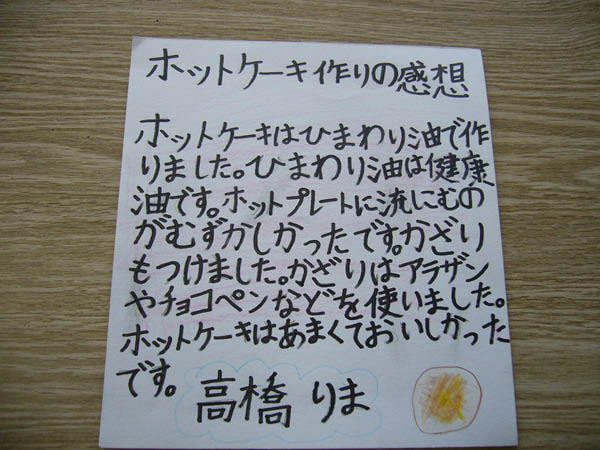 ホットケーキ作りの感想
ホットケーキはひまわり油で作
りました。ひまわり油は健康
油です。ホットプレートに流しこむの
がむずかしかったです。かざり
もつけました。かざりはアラザン
やチョコペンなどを使いました。
ホットケーキはあまくておいしかった
です。
高橋りま